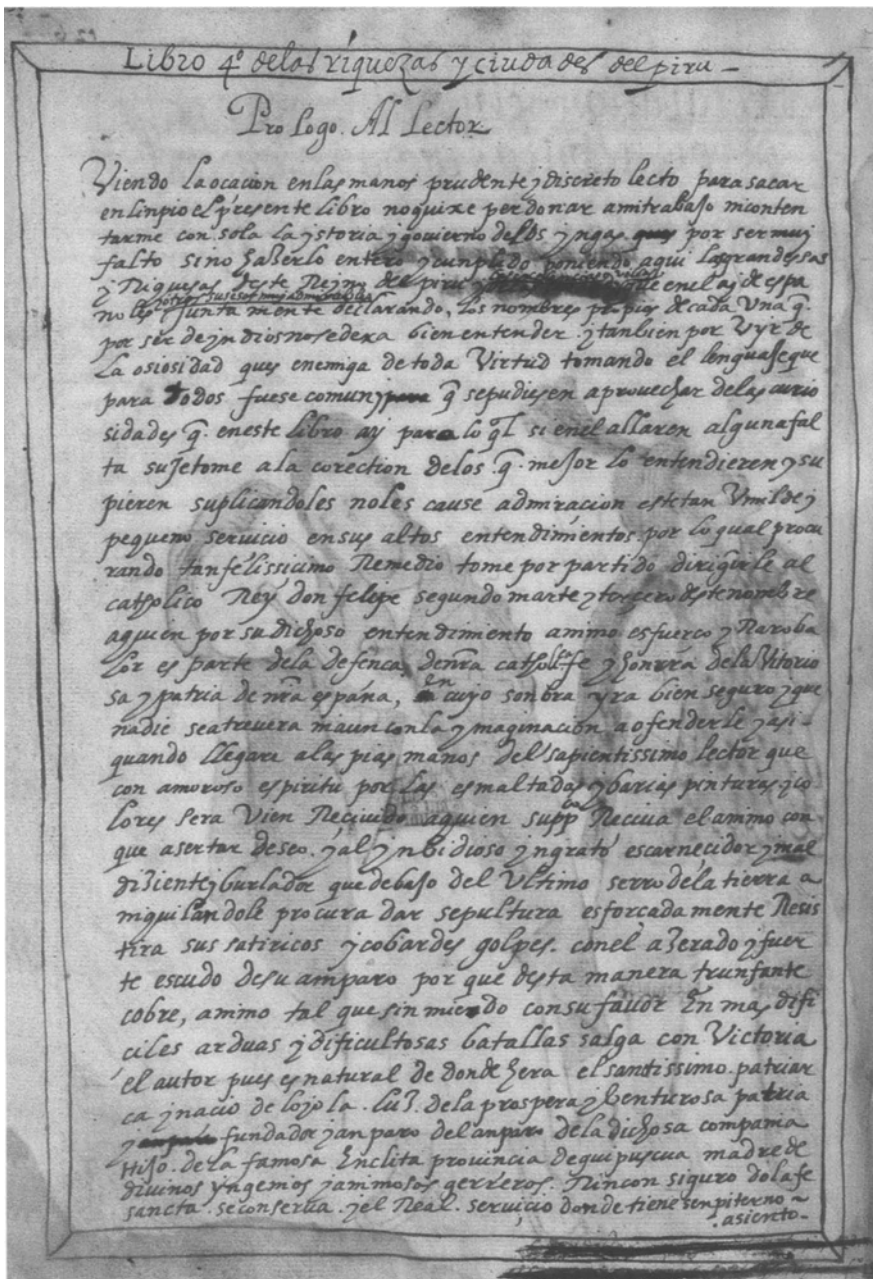 Libro 4º de las riquezas y ciudades del piru
Prologo. Al Lector
Viendo la ocacion en las manos prudente y discreto lecto para sacar
en linpio el presente libro no quixe perdonar a mi trabajo ni conten
tarme con sola la ystoria y govierno de los yngas por ser muy
falto sino hazerlo entero y cunplido poniendo aqui las grandesas
y Riquesas deste Reyno del piru que en el ay de espa
y otros susesos muy admirables
noles junta mente declarando, los nombres propios de cada una q.
por ser de yndios no se dexa bien entender. y tanbien por Uyr de
La osiosidad ques enemiga de toda Virtud tomando el lenguaje que
para todos fuese comun y q̃ se pudiesen aprovechar de las curio
sidades q̃. en este Libro ay para lo q̃l si en el allaren alguna fal
ta sujetome a la corection de los .q̃. mejor lo entendieren y su
pieren suplicandoles no les cause admiracion este tan Umilde y
pequeno servicio en sus altos entendimientos. por lo qual procu
rando tan felissicimo Remedio tome por partido dirigirle al
catholico Rey don felipe segundo marte y tercero deste nombre
a quien por su dichoso entendimiento animo esfuerco y Raro ba
lor es parte de la defenca, de nrã catholica fe y honrra de la Vitorio
sa y patria de nrã españa, en cuyo sonbra yra bien seguro y que
nadie se atrevera ni aun con la ymaginacion a ofenderle y asi-
quando llegare a las pias manos del sapientissimo lector que
con amoroso espiritu por las esmaltadas y barias pinturas y co
lores sera Vien Recivido a quien suppco Reciva el animo con
que asertar deseo. y al ynbidioso yngrato escarnecidor y mal
diziente y burlador que debajo del Ultimo serro de la tierra a
niquilandole procura dar sepultura esforcadamente Resis
tira sus satiricos y cobardes golpes. con el azerado y fuer
te escudo de su amparo por que desta manera trunfante
cobre, animo tal que sin miedo con su favor En mas difi
ciles arduas y dificultosas batallas salga con Victoria
el autor pues es natural de donde hera el santissimo. patriar
ca ynacio de loyola. luz. de la prospera y benturosa patria
fundador y anparo del anparo de la dichosa compania
Hijo. de la famosa Enclita provincia de guipuscua madre de
divinos yngenios y animosos gerreros. Rincon siguro do la fe
sancta. se conserva. y el Real. servicio donde tiene senpiterno ~
. asiento-